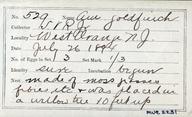 No. 529 Name Am. Goldfinch
Collector
Locality West Orange N.J.
Date July 26 189
No. of Eggs in Set 3 Set Mark 1/3
Identity sure Incubation begun
Nest made of moss, grasses
fibres etc & was placed in
a willow tree 10 feet up